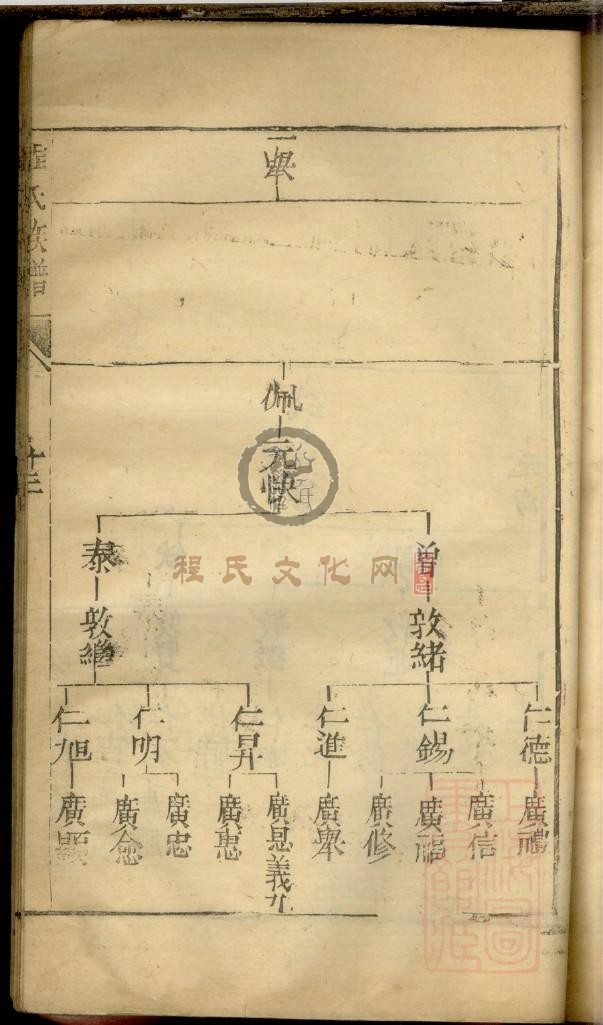 一舉
氏族譜
十三
佩
元快
曾
泰
敦緒
敦繼
仁德
仁錫
仁進
仁昇
仁明
仁旭
廣禮
廣信
廣福
廣修
廣舉
廣恩義九
廣惠
廣忠
廣念
廣顯
程氏文化网